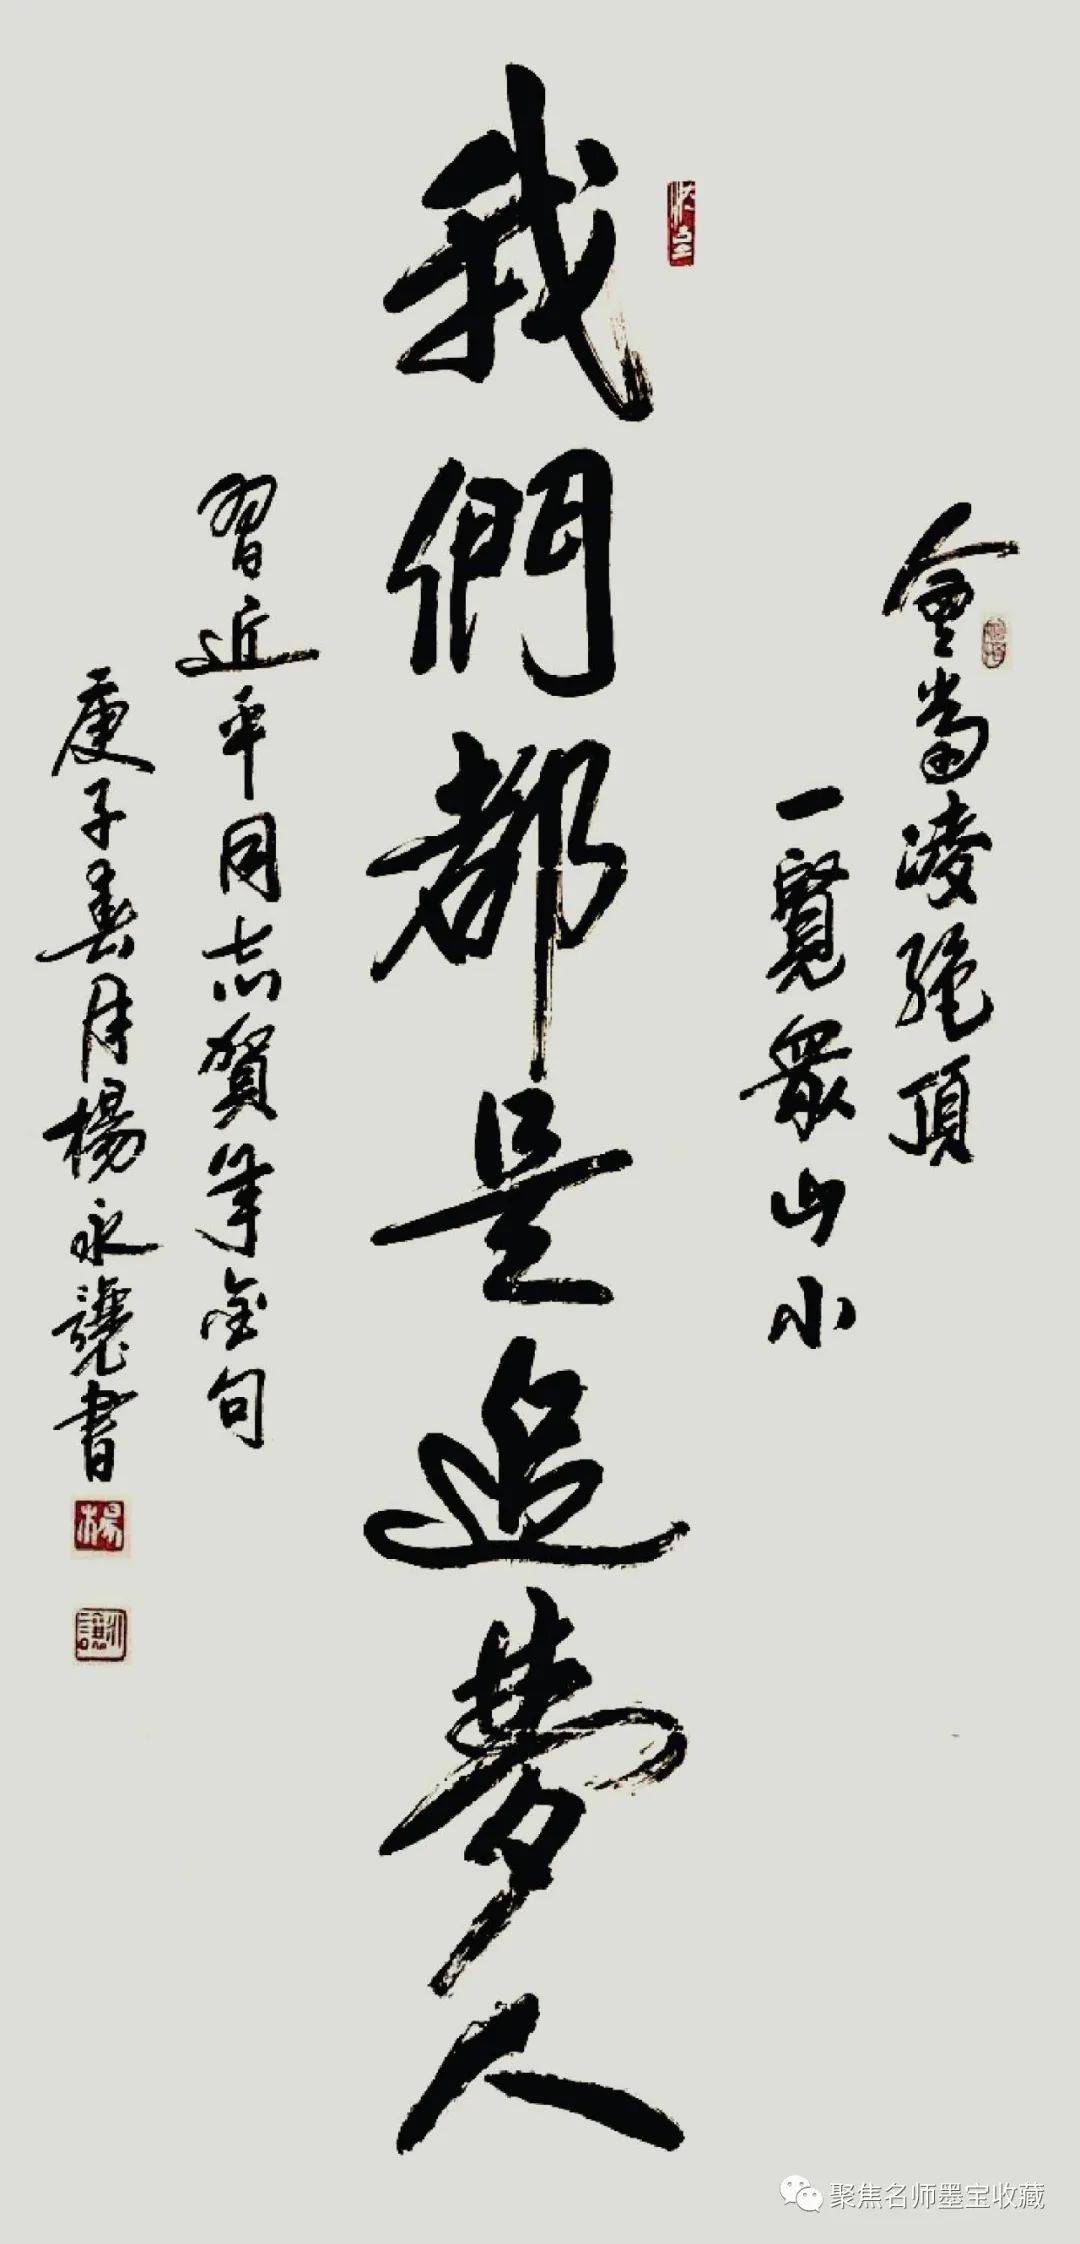 會當凌絕頂
一覽眾山小
我們都是追夢人
習近平同志賀年金句
庚子春月楊永讓書
楊
永讓
聚焦名师墨宝收藏